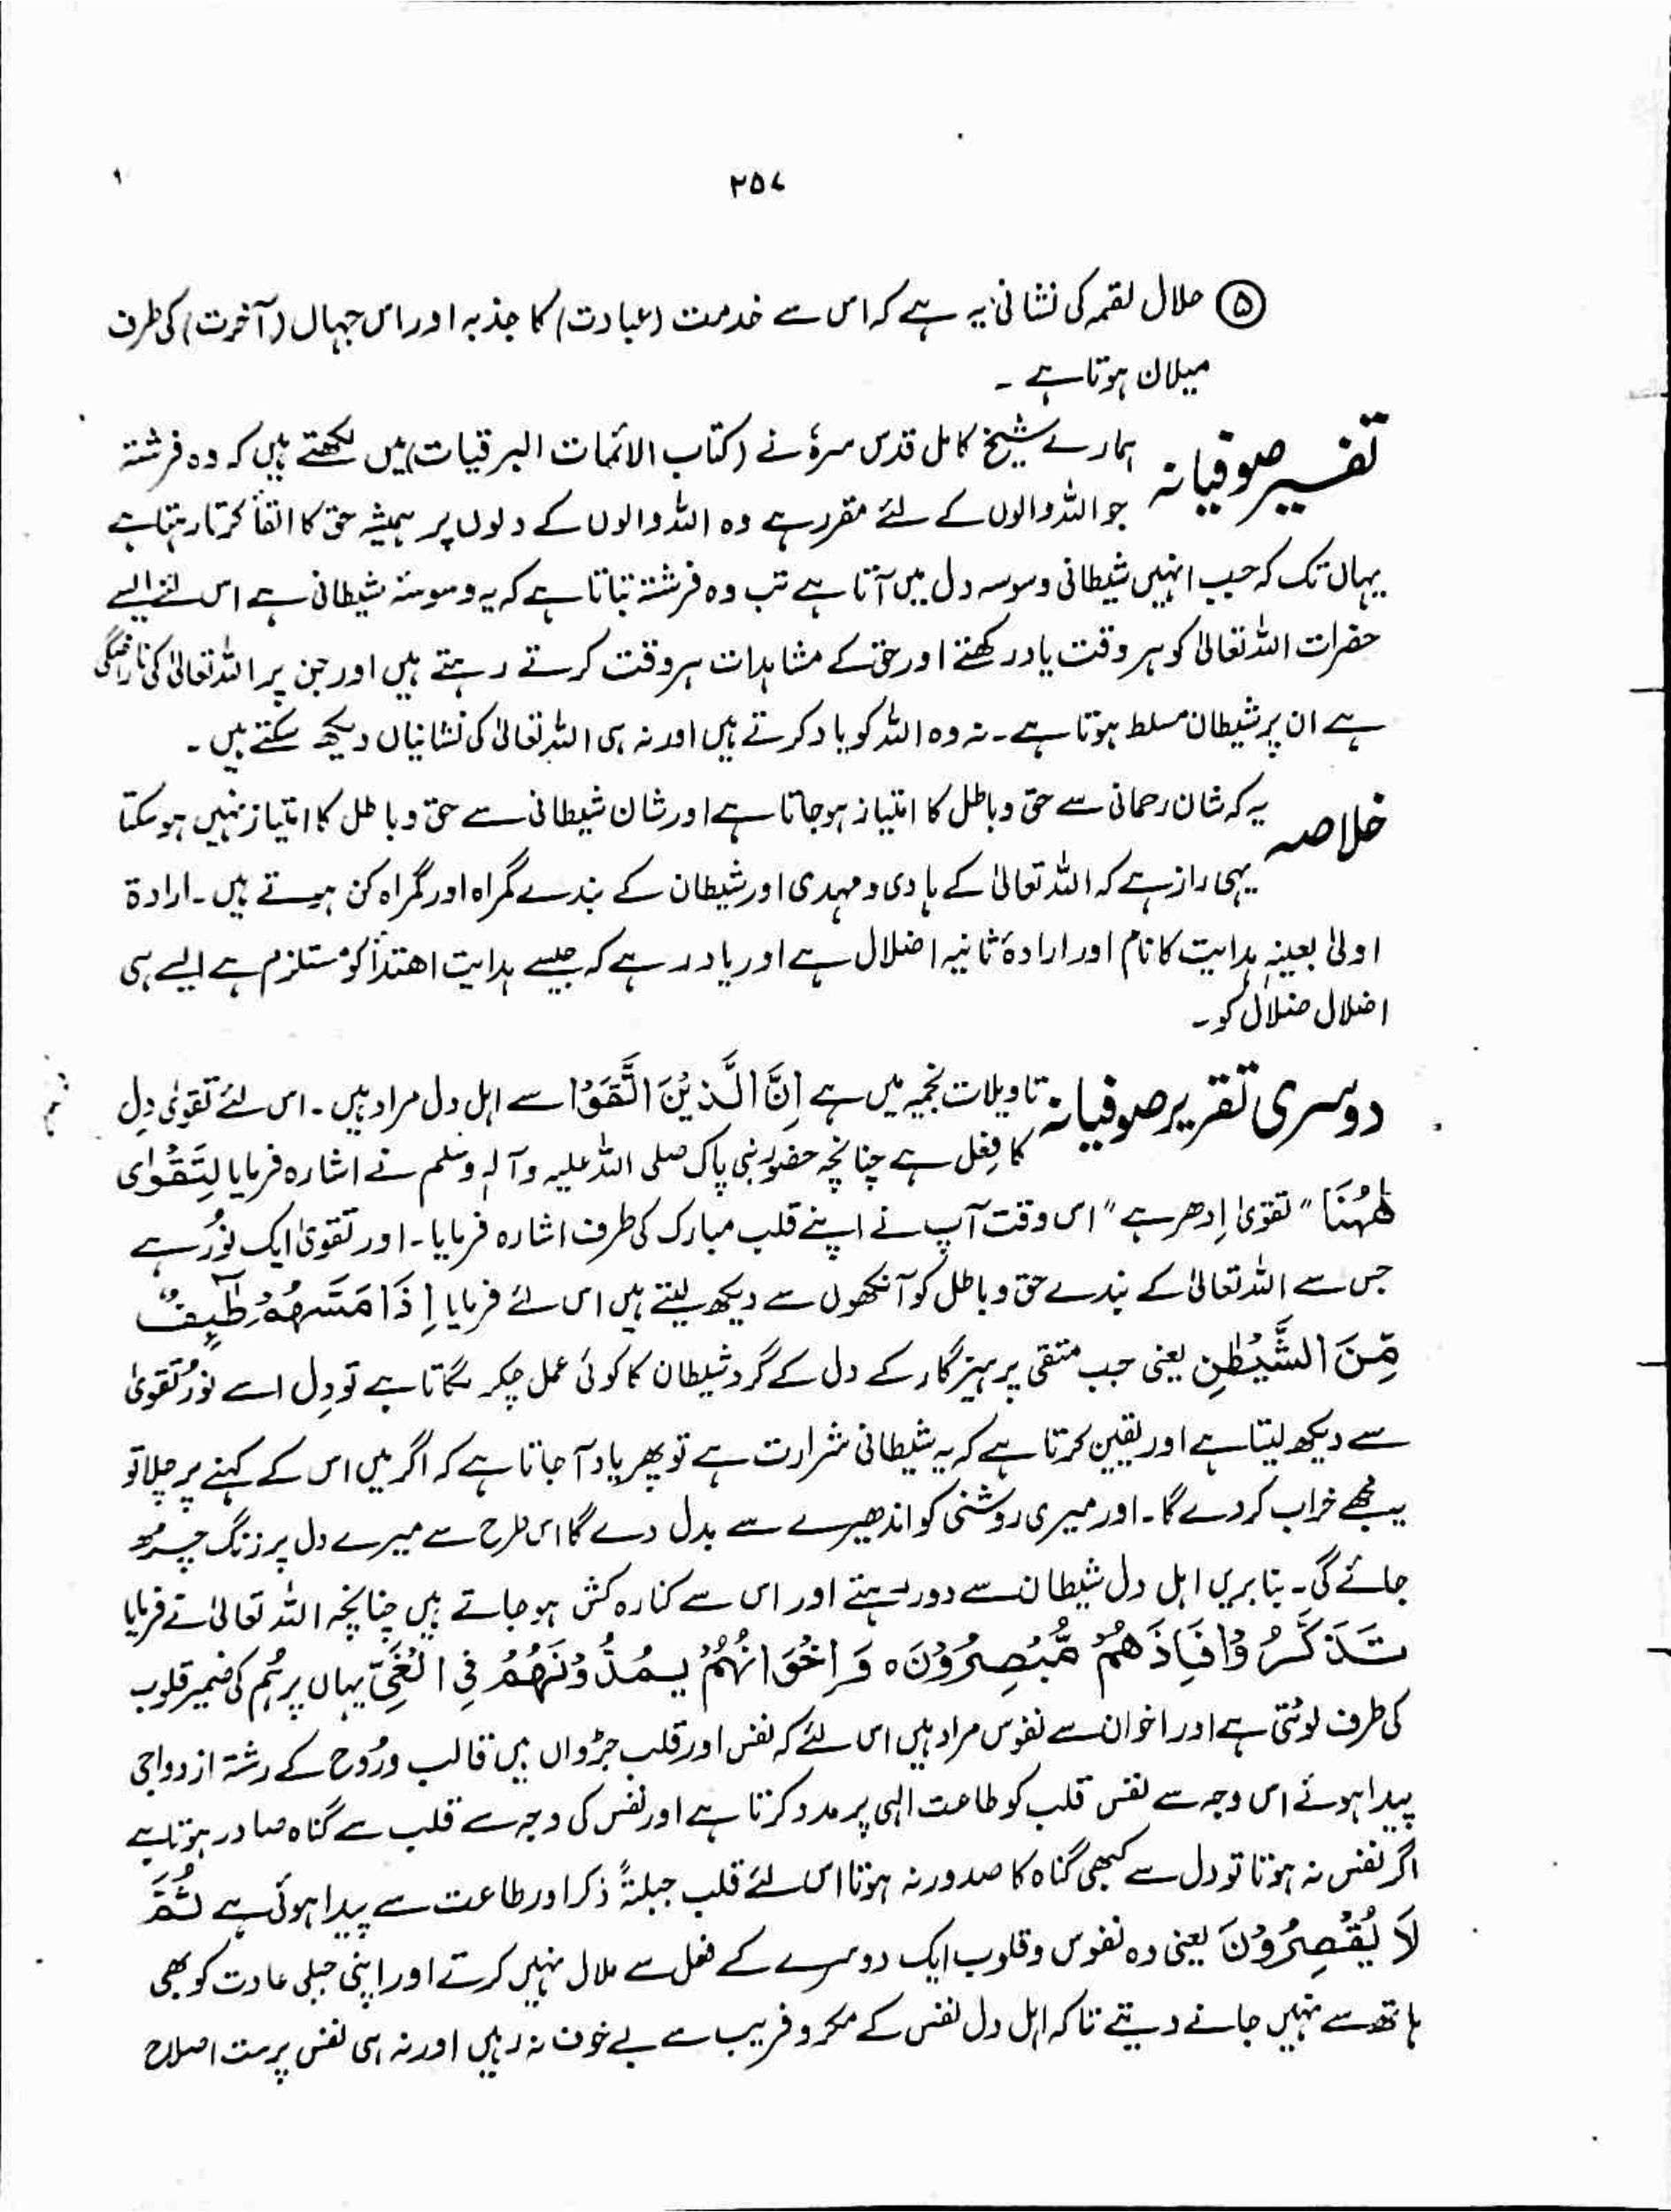 ۲۵۷
⑤ حلال لقمہ کی نشانی یہ ہے کہ اس سے خدمت (عبادت) کا جذبہ اور اس جہاں (آخرت) کی طرف
میلان ہوتا ہے ۔
تفسیر صوفیانہ ہمارے شیخ کامل قدس سرہٗ نے (کتاب الائمات البرقیات) میں لکھتے ہیں کہ وہ فرشتہ
جو اللہ والوں کے لئے مقرر ہے وہ اللہ والوں کے دلوں پر ہمیشہ حق کا القأ کرتا رہتا ہے
یہاں تک کہ جب انہیں شیطانی وسوسہ دل میں آتا ہے تب وہ فرشتہ بتاتا ہے کہ یہ وسوسۂ شیطانی ہے اس لئے ایسے
حضرات اللہ تعالیٰ کو ہر وقت یاد رکھتے اور حق کے مشاہدات ہر وقت کرتے رہتے ہیں اور جن پر اللہ تعالیٰ کی ناراضگی
ہے ان پر شیطان مسلط ہوتا ہے ۔ نہ وہ اللہ کو یاد کرتے ہیں اور نہ ہی اللہ تعالیٰ کی نشانیاں دیکھ سکتے ہیں ۔
خلاصہ یہ کہ شان رحمانی سے حق و باطل کا امتیاز ہو جاتا ہے اور شان شیطانی سے حق و باطل کا امتیاز نہیں ہو سکتا
یہی راز ہے کہ اللہ تعالیٰ کے ہادی و مہدی اور شیطان کے بندے گمراہ اور گمراہ کن ہوتے ہیں ۔ ارادۃ
اولیٰ بعینہٖ ہدایت کا نام اور ارادۂ ثانیہ اضلال ہے اور یاد رہے کہ جیسے ہدایت اھتدأ کو مستلزم ہے ایسے ہی
اضلال ضلال کو ۔
دوسری تقریر صوفیانہ تاویلات نجمیہ میں ہے اِنَّ الَّذِیْنَ اتَّقَوْا سے اہل دل مراد ہیں ۔ اس لئے تقویٰ دِل
کا فِعل ہے چنانچہ حضور نبی پاک صلی اللہ علیہ وآلہٖ وسلم نے اشارہ فرمایا لِتَقْوٰی
ھٰھُنَا "تقویٰ اِدھر ہے" اس وقت آپ نے اپنے قلب مبارک کی طرف اشارہ فرمایا ۔ اور تقویٰ ایک نُور ہے
جس سے اللہ تعالیٰ کے بندے حق و باطل کو آنکھوں سے دیکھ لیتے ہیں اس لئے فرمایا اِذَا مَسَّھُمْ طٰٓئِفٌ
مِّنَ الشَّیْطٰنِ یعنی جب متقی پرہیزگار کے دل کے گرد شیطان کا کوئی عمل چکر لگاتا ہے تو دِل اسے نورِ تقویٰ
سے دیکھ لیتا ہے اور یقین کرتا ہے کہ یہ شیطانی شرارت ہے تو پھر یاد آ جاتا ہے کہ اگر میں اس کے کہنے پر چلا تو
یہ مجھے خراب کر دے گا ۔ اور میری روشنی کو اندھیرے سے بدل دے گا اس طرح سے میرے دل پر زنگ چڑھ
جائے گی ۔ بنا بریں اہل دل شیطان سے دور رہتے اور اس سے کنارہ کش ہو جاتے ہیں چنانچہ اللہ تعالیٰ نے فرمایا
تَذَکَّرُوْا فَاِذَاھُمْ مُّبْصِرُوْنَ ہ وَاِخْوَانُھُمْ یَمُدُّوْنَھُمْ فِی الْغَیِّ یہاں پر ہُم کی ضمیر قلوب
کی طرف لوٹتی ہے اور اخوان سے نفوس مراد ہیں اس لئے کہ نفس اور قلب جڑواں ہیں قالب و رُوح کے رشتۂ ازدواجی
پیدا ہوئے اس وجہ سے نفس قلب کو طاعت الہی پر مدد کرتا ہے اور نفس کی وجہ سے قلب سے گناہ صادر ہوتا ہے
اگر نفس نہ ہوتا تو دل سے کبھی گناہ کا صدور نہ ہوتا اس لئے قلب جبلۃً ذکر اور طاعت سے پیدا ہوئی ہے ثُمَّ
لَا یُقْصِرُوْنَ یعنی وہ نفوس و قلوب ایک دوسرے کے فعل سے ملال نہیں کرتے اور اپنی جبلی عادت کو بھی
ہاتھ سے نہیں جانے دیتے تاکہ اہل دل نفس کے مکر و فریب سے بے خوف نہ رہیں اور نہ ہی نفس پرست اصلاح